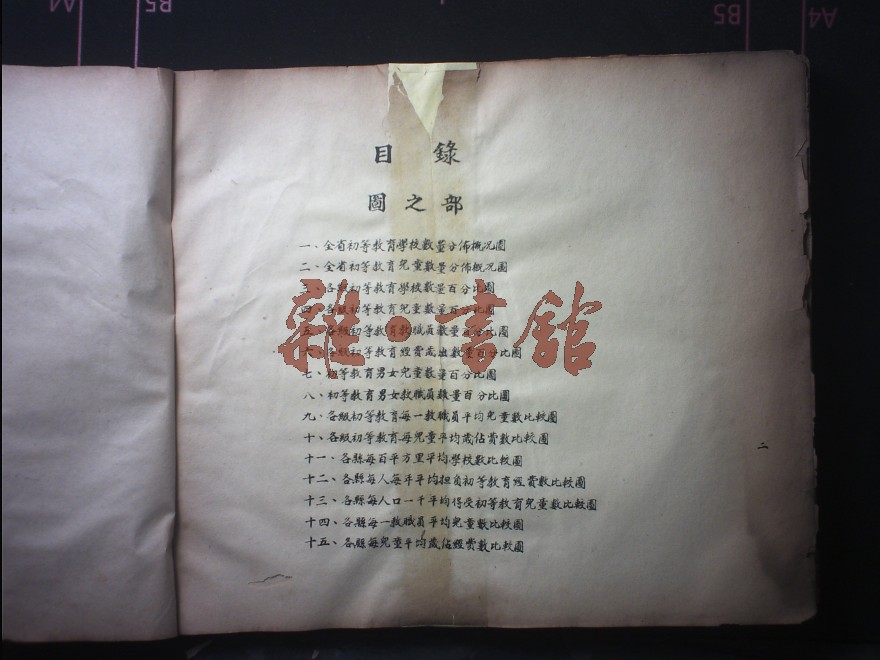 A4
B5
B5
A4
目錄
圖之部
一、全省初等教育學校數量分佈概況圖
二、全省初等教育兒童數量分佈概況圖
三、各級初等教育學校數量百分比圖
四、各級初等教育兒童數量百分比圖
五、各級初等教育教職員數量百分比圖
六、各級初等教育經費歲出數量百分比圖
七、初等教育男女兒童數量百分比圖
八、初等教育男女教職員數量百分比圖
九、各級初等教育每一教職員平均兒童數比較圖
十、各級初等教育每兒童平均歲佔費數比較圖
十一、各縣每百平方里平均學校數比較圖
十二、各縣每人每年平均担負初等教育經費數比較圖
十三、各縣每人口一千平均得受初等教育兒童數比較圖
十四、各縣每一教職員平均兒童數比較圖
十五、各縣每兒童平均歲佔經費數比較圖
二
雜·書館